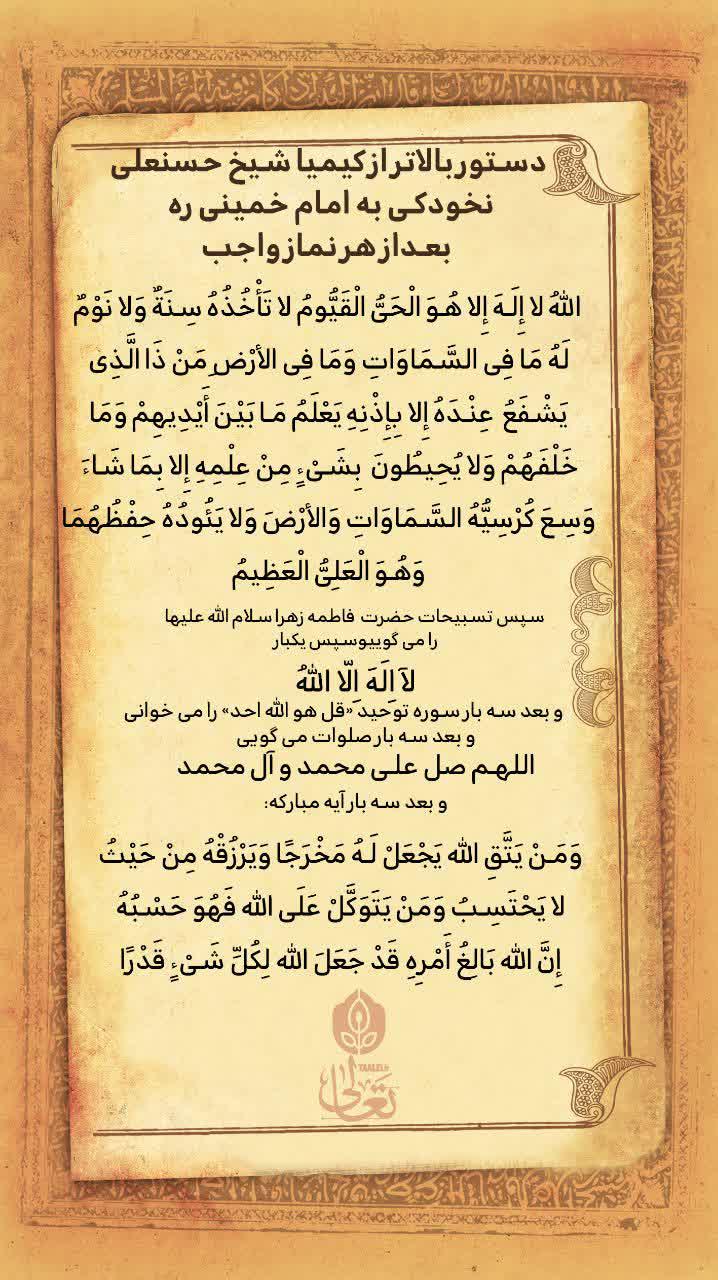 دستور بالاتر از کیمیا شیخ حسنعلی
نخودکی به امام خمینی ره
بعد از هر نماز واجب
اللهُ لا إِلَـهَ إِلا هُوَ الْحَيُّ الْقَيُّومُ لا تَأْخُذُهُ سِنَةٌ وَلا نَوْمٌ
لَهُ مَا فِی السَّمَاوَاتِ وَمَا فِی الأرْضِ مَنْ ذَا الَّذِی
يَشْفَعُ عِنْدَهُ إِلا بِإِذْنِهِ يَعْلَمُ مَا بَيْنَ أَيْدِيهِمْ وَمَا
خَلْفَهُمْ وَلا يُحِيطُونَ بِشَیْءٍ مِنْ عِلْمِهِ إِلا بِمَا شَاءَ
وَسِعَ كُرْسِيُّهُ السَّمَاوَاتِ وَالأرْضَ وَلا يَئُودُهُ حِفْظُهُمَا
وَهُوَ الْعَلِیُّ الْعَظِيمُ
سپس تسبیحات حضرت فاطمه زهرا سلام الله علیها
را می گوییوسپس یکبار
لآ اِلَهَ اِلّا اللهُ
و بعد سه بار سوره توحید «قل هو الله احد» را می خوانی
و بعد سه بار صلوات می گویی
اللهم صل علی محمد و آل محمد
و بعد سه بار آیه مبارکه:
وَمَنْ يَتَّقِ الله يَجْعَلْ لَهُ مَخْرَجًا وَيَرْزُقْهُ مِنْ حَيْثُ
لا يَحْتَسِبُ وَمَنْ يَتَوَكَّلْ عَلَى الله فَهُوَ حَسْبُهُ
إِنَّ الله بَالِغُ أَمْرِهِ قَدْ جَعَلَ الله لِكُلِّ شَیْءٍ قَدْرًا
تعالی